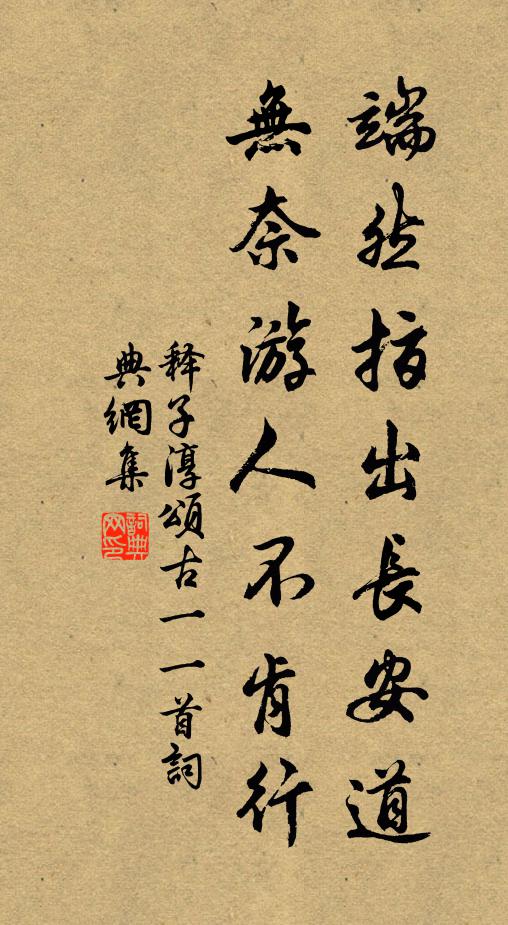 端然指出長安道
無奈游人不肯行
释子淳頌古一一首詞
典網集
詞典
网印